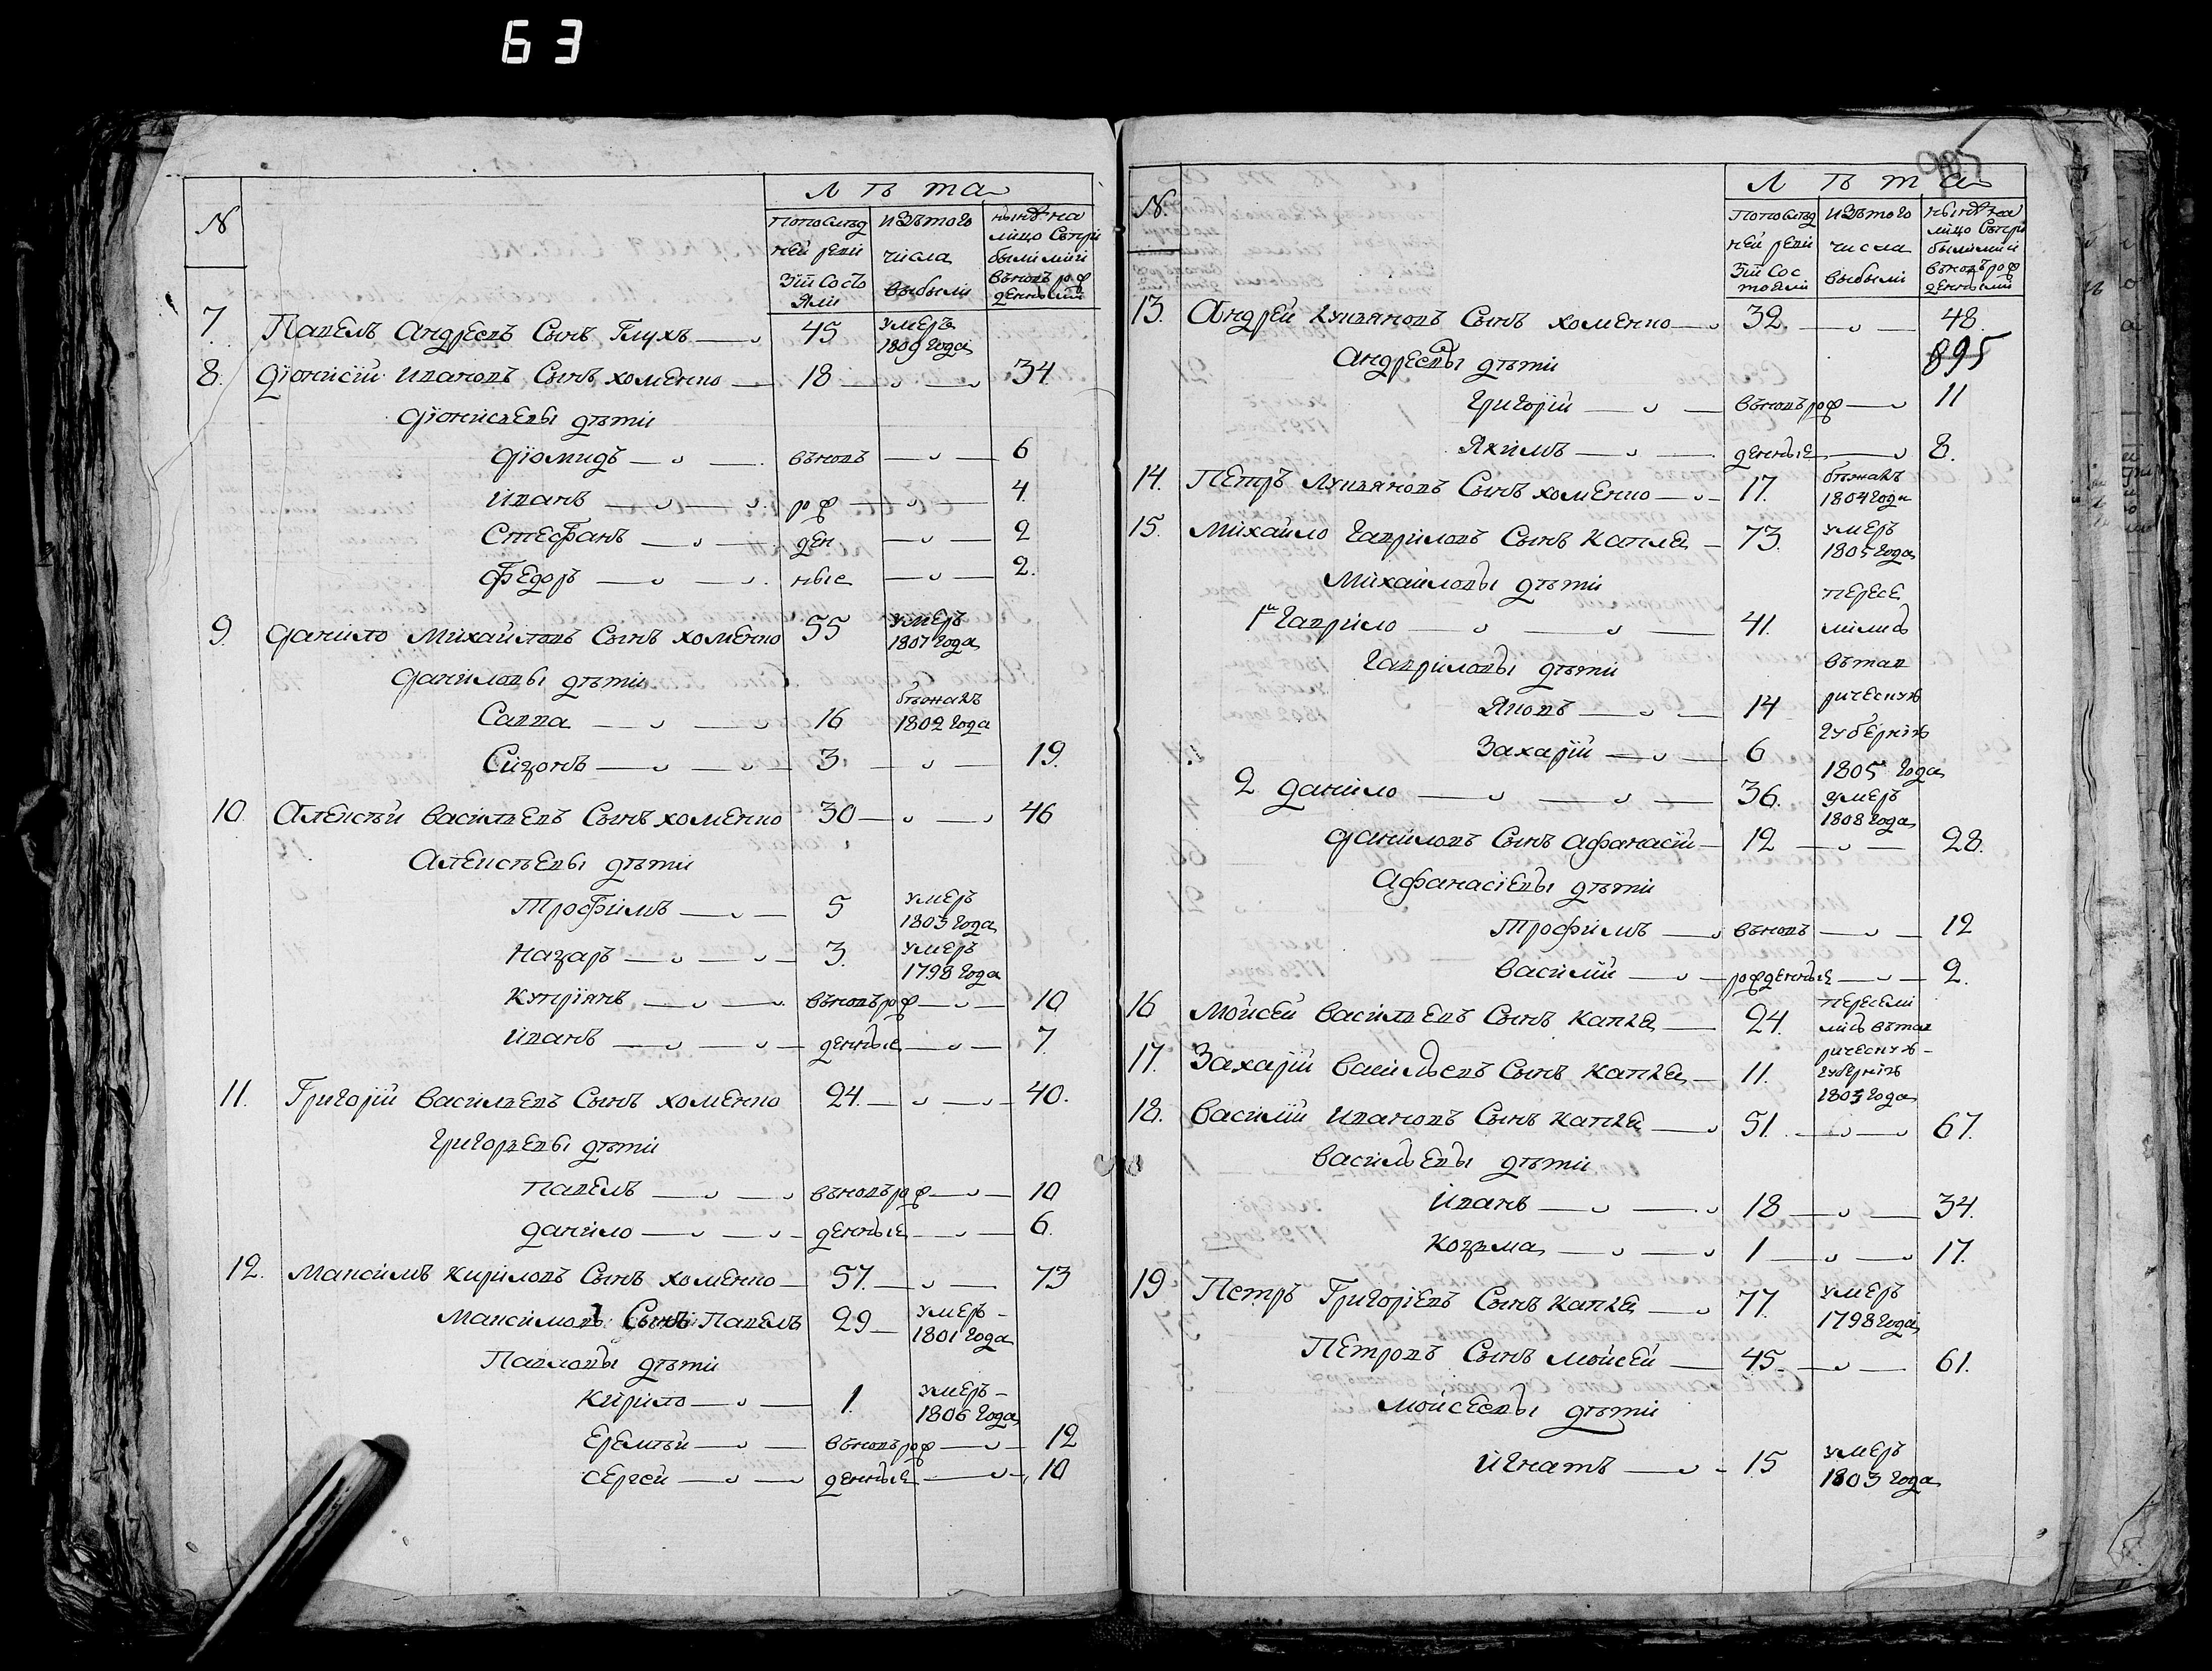 63
Л ѣ та
№ по послѣд ней реви зіи состо яли изъ того числа выбыли нынѣ на лицо съ при былыми и вновь рож денными
7. Павелъ Андреевъ Сынъ Глухъ 45 умеръ 1809 года
8. Діонисій Ивановъ Сынъ хоменко 18 34
Діонисьевы дѣти
Діомидъ вновь 6
Иванъ рож 4.
Стефанъ ден 2
Федоръ ные 2.
9. Данило Михайловъ Сынъ хоменко 55 умеръ 1807 года
Даниловы дѣти
Савва 16 бѣжалъ 1802 года
Сизонъ 3. 19.
10. Алексѣй Васильевъ Сынъ хоменко 30 46
Алексѣевы дѣти
Трофимъ 5 умеръ 1803 года
Назаръ 3. умеръ 1798 года
Купріянъ вновь рож 10
Иванъ денные 7.
11. Григорій Васильевъ Сынъ хоменко 24. 40.
Григорьевы дѣти
Павелъ вновь рож 10
Данило денные 6.
12. Максимъ Кириловъ Сынъ хоменко 57. 73
Максимовъ Сынъ Павелъ 29 умеръ 1801 года
Павловы дѣти
Кирило 1. умеръ 1806 года
Еремѣй вновь рож 12
Сергей денные 10
Л ѣ т а
№. по послѣд ней реви зіи сос тояли изъ того числа выбыли нынѣ на лицо съ при былыми и вновь рож денными
13. Андрей Лукьяновъ Сынъ хоменко 32. 48.
895
Андреевы дѣти
Григорій вновь рож 11
Якимъ денные 8.
14. Петръ Лукьяновъ Сынъ хоменко 17. бѣжалъ 1804 года
15. Михайло Гавриловъ Сынъ Каплѣ 73. умеръ 1805 года
Михайловы дѣти
1й Гаврило 41. пересе лились
Гавриловы дѣти въ тав
Яковъ 14 рическую
Захарій 6 губернію 1805 года
2 Данило 36. умеръ 1808 года
Даниловъ Сынъ Афанасій 12 28.
Афанасіевы дѣти
Трофимъ вновь 12
Василій рожденные 2.
16 Мойсей Васильевъ Сынъ Каплѣ 24. пересели лись въ тав
17. Захарій Васильевъ Сынъ Каплѣ 11. рическую губернію 1803 года
18. Василій Ивановъ Сынъ Каплѣ 51. 67.
Васильевы дѣти
Иванъ 18 34.
Козьма 1 17.
19 Петръ Григоріевъ Сынъ Каплѣ 77. умеръ 1798 года
Петровъ Сынъ Мойсей 45 61.
Мойсеевы дѣти
Игнатъ 15 умеръ 1803 года